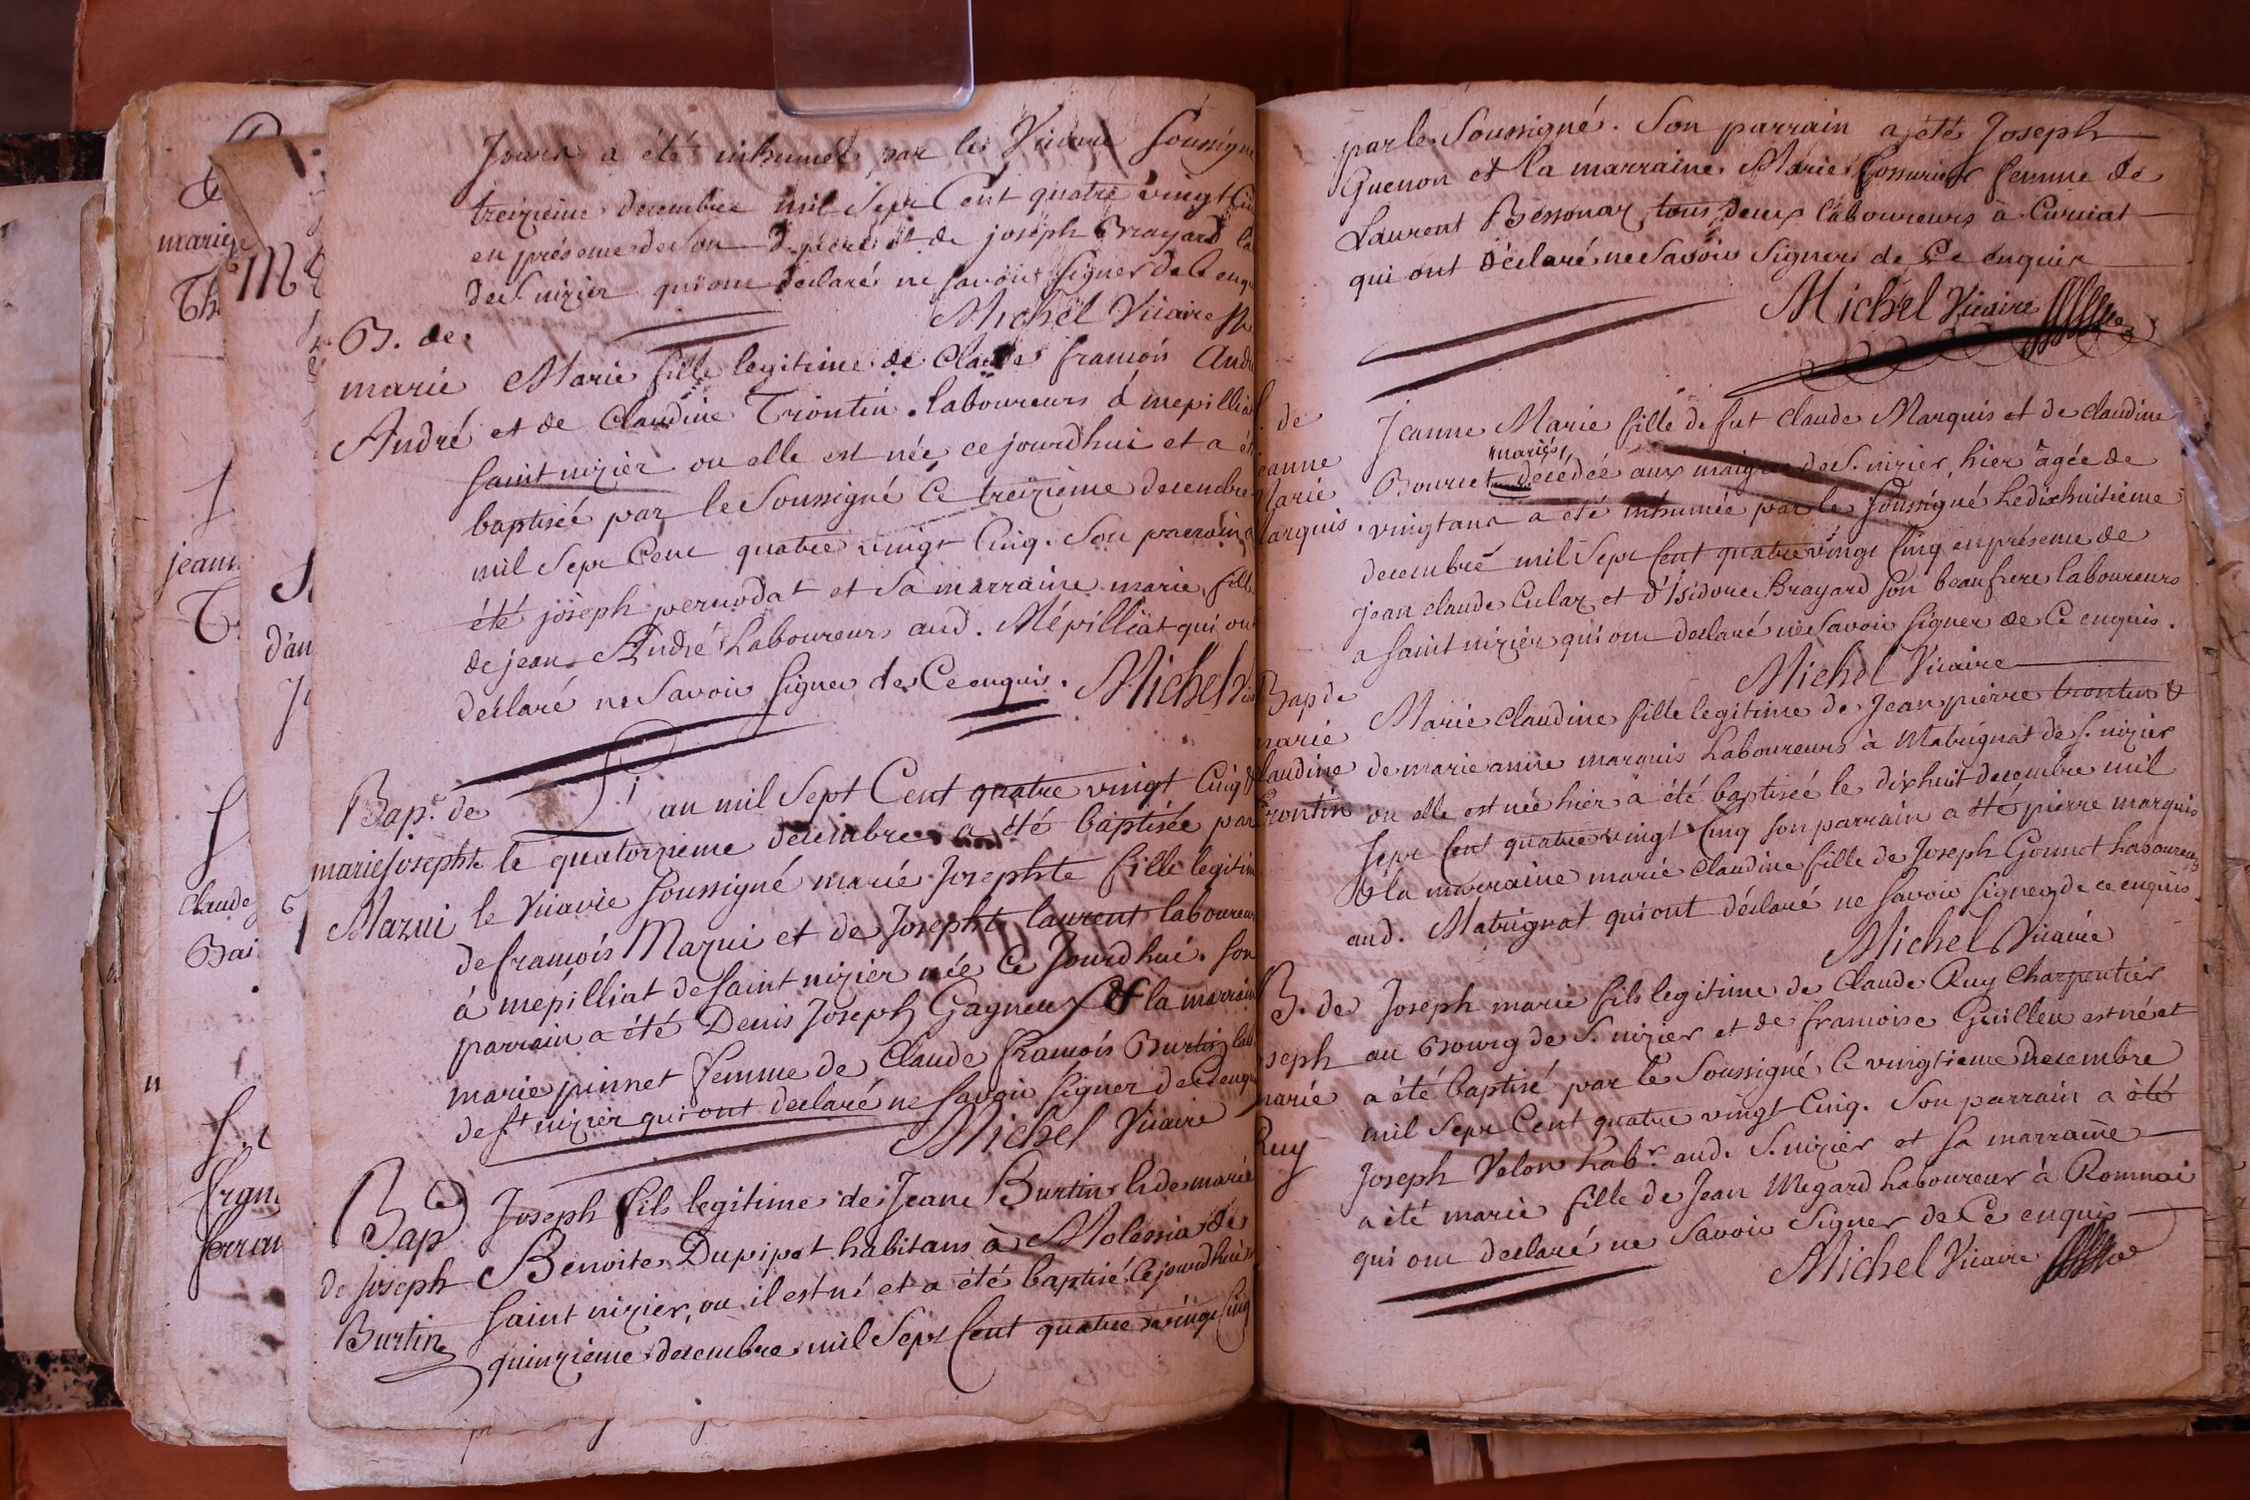 Jours a été inhumée par le Vicaire Soussigné
treizieme decembre mil Sept Cent quatre vingt Cin
en présence de Son père et de joseph Brayard la
de St nizier qui ont declaré ne savoir signer de Ce enq
Michel Vicaire
B. de
marie
André
Marie fille legitime de Claude francois André
et de Claudine Trontin laboureurs à mepilliat
saint nizier ou elle est née ce jourdhui et a été
baptisée par le Soussigné le treizieme decembre
mil Sept Cent quatre vingt Cinq. Son parrain a
été joseph pernodat et sa marraine marie fille
de jean André Laboureurs aud. Mépilliat qui ont
declaré ne Savoir signer de Ce enquis.
Michel Vic
Bap.e de
marie josephte
Mazui
an mil Sept Cent quatre vingt Cinq &
le quatorzieme decembre a été baptisée par
le Vicaire Soussigné marie Josephte fille legitime
de francois Mazui et de Josephte laurent laboureurs
à mépilliat de saint nizier née Ce Jourdhui. Son
parrain a été Denis Joseph Gagneux & la marraine
marie pinnet femme de Claude francois Burtin lab
de St nizier qui ont declaré ne savoir signer de Ce enq
Michel Vicaire
Bap
de joseph
Burtin
Joseph fils legitime de Jean Burtin & de marie
Benoite Dupipet habitans à Molessia de
saint nizier, ou il est né et a été baptisé Ce jourdhui
quinzieme decembre mil Sept Cent quatre vingt Cinq
par le Soussigné. Son parrain a été Joseph
Guenon et la marraine Marie femme de
Laurent Bessonar tous deux laboureurs à Curciat
qui ont déclaré ne Savoir Signer de Ce enquis
Michel Vicaire
de
eanne
Marie
Marquis.
Jeanne Marie fille de fut Claude Marquis et de Claudine
mariés
Bourcet decedée aux maigres de S. nizier hier agée de
vingt ans a été inhumée par le Soussigné Le dixhuitieme
decembre mil Sept Cent quatre vingt Cinq en présence de
jean claude Culaz et d'Isidore Brayard son beaufrere laboureurs
a saint nizier qui ont declaré ne Savoir signer de Ce enquis.
Michel Vicaire
Bap de
marie
laudine
trontin
Marie Claudine fille legitime de Jean pierre trontin &
de marie anne marquis Laboureurs à Matrignat de S. nizier
ou elle est née hier a été baptisée le dixhuit decembre mil
Sept Cent quatre vingt Cinq son parrain a été pierre marquis
& la marraine marie Claudine fille de Joseph Gonnot Laboureurs
aud. Matrignat qui ont déclaré ne savoir signer de ce enquis
Michel Vicaire
B. de
oseph
marie
Ruy
Joseph marie fils legitime de Claude Ruy Charpentier
au Bourg de S. nizier et de francoise Guillen est né et
a été baptisé par le Soussigné le vingtieme Decembre
mil Sept Cent quatre vingt Cinq. Son parrain a été
Joseph Velon Lab.r aud. S. nizier et sa marraine
a été marie fille de Jean Megard Laboureur à Romnai
qui ont declaré ne Savoir Signer de Ce enquis
Michel Vicaire